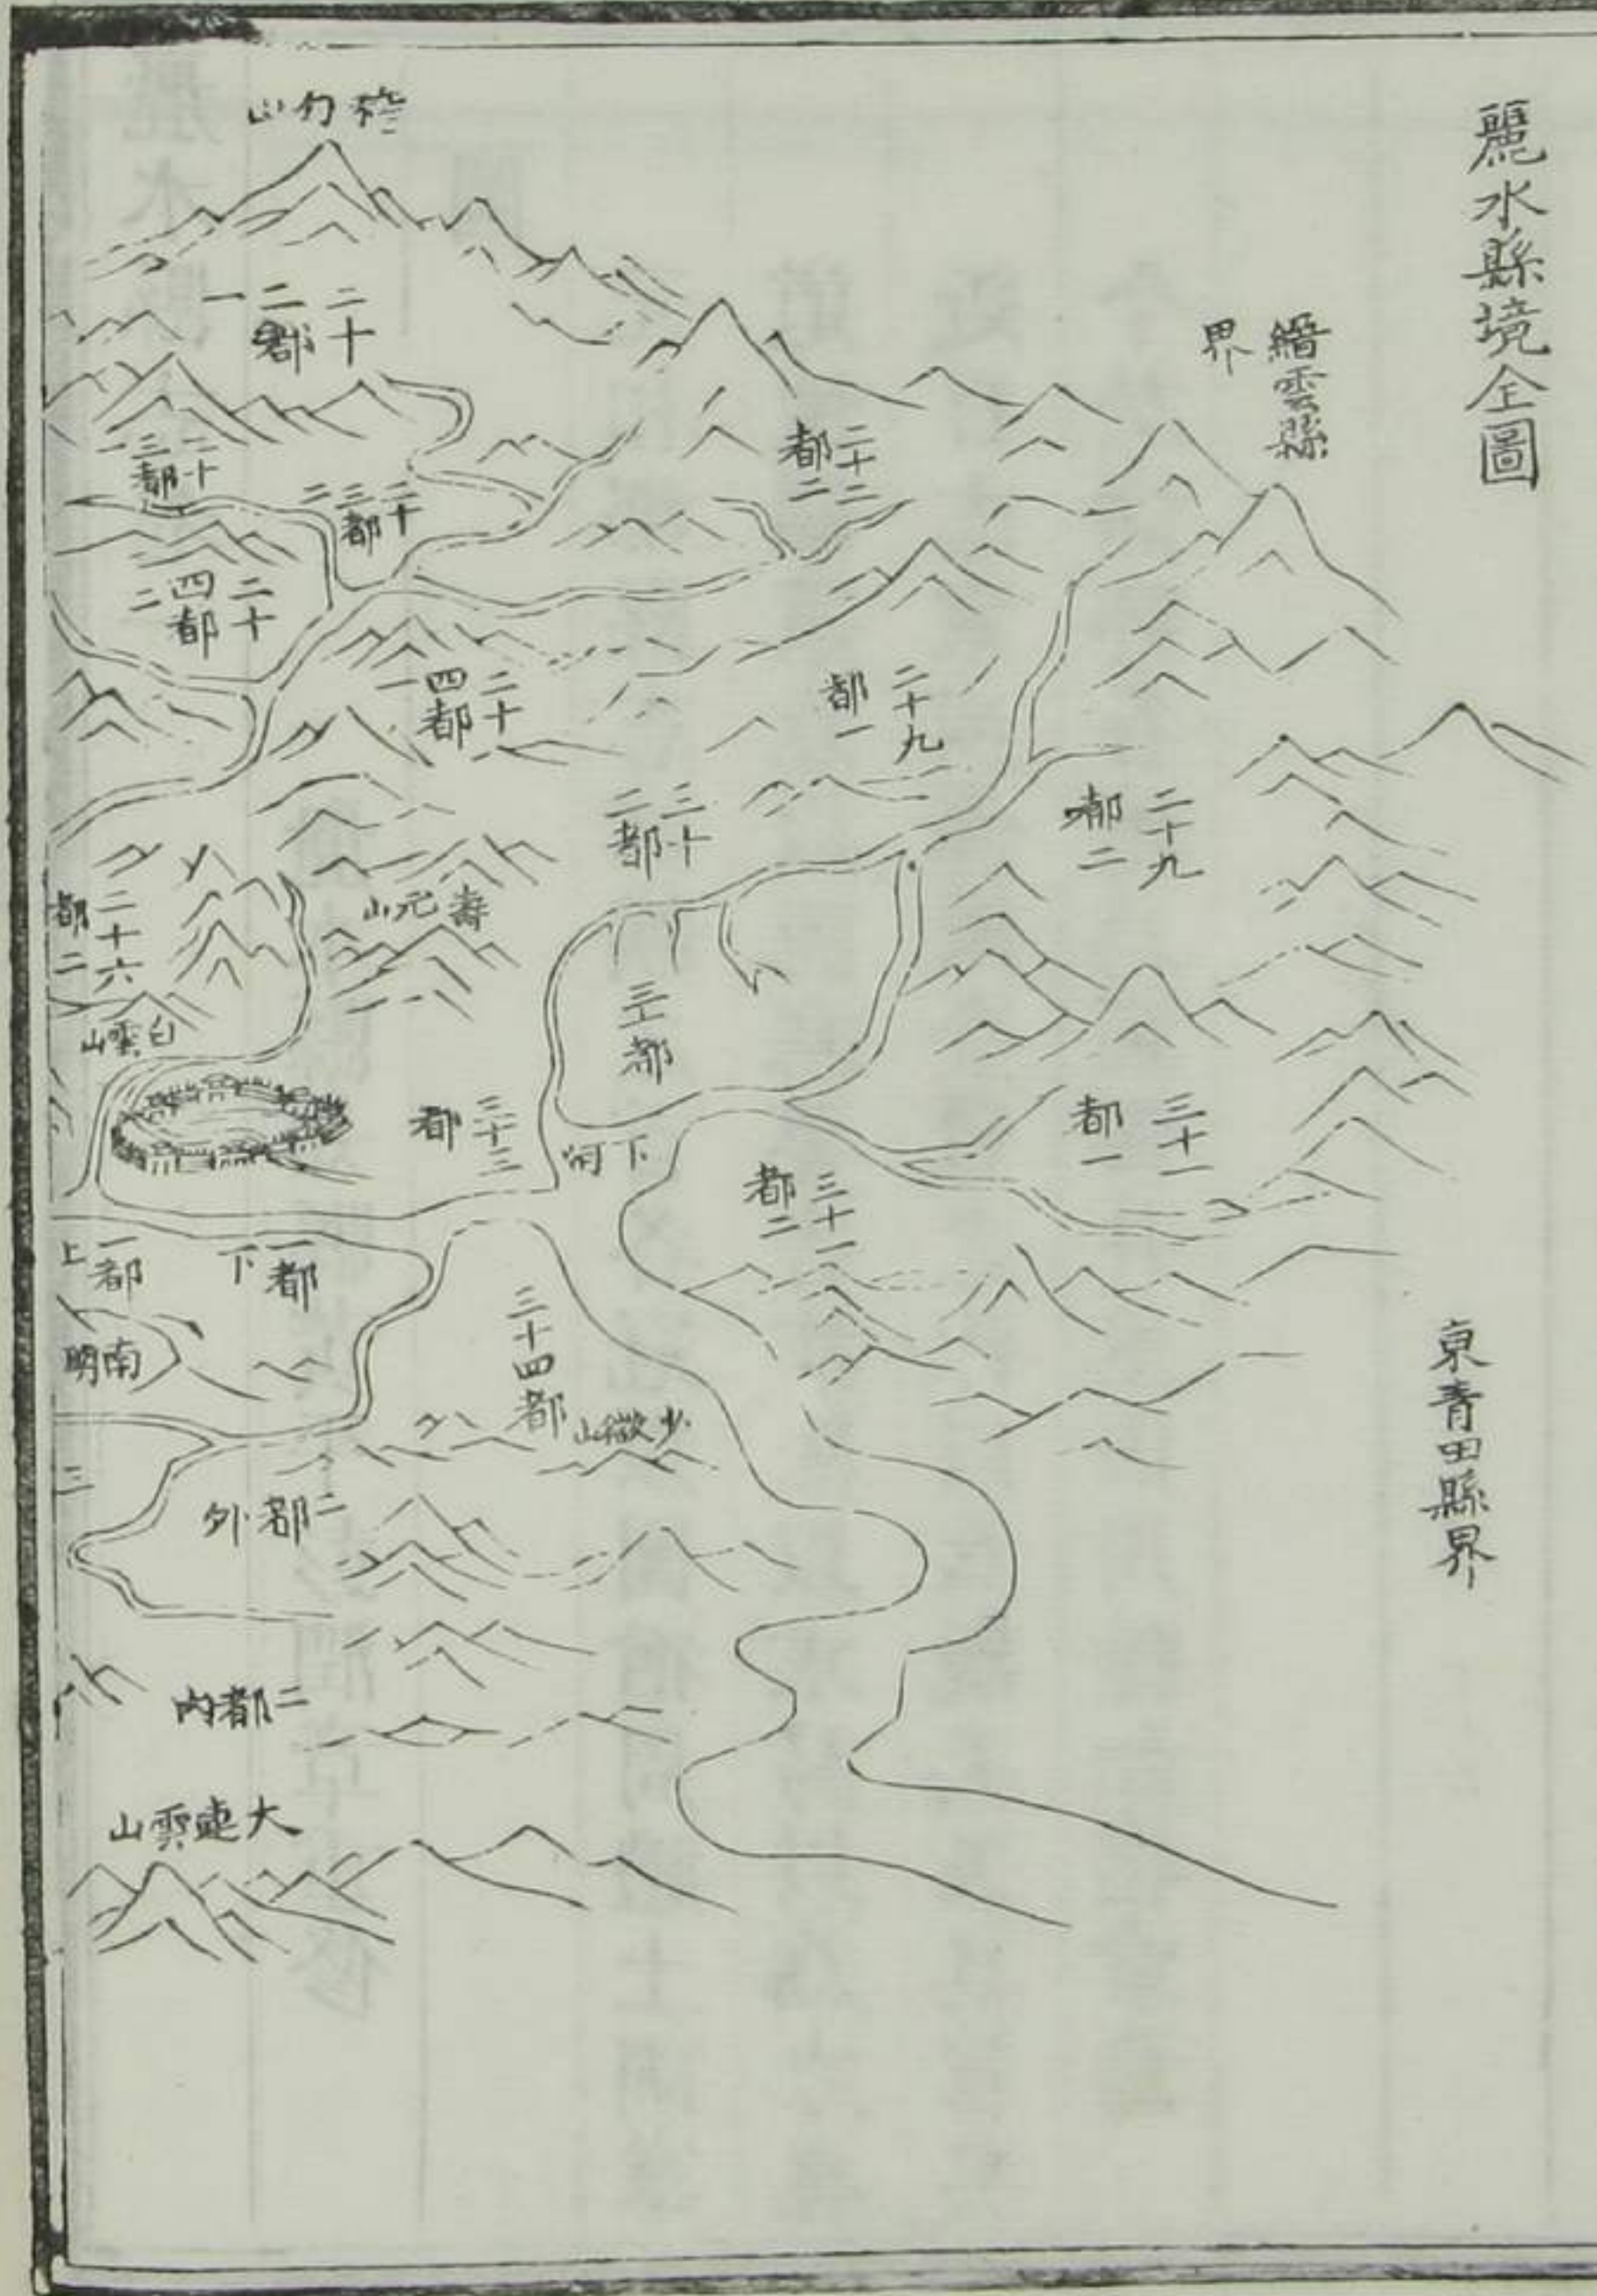 麗水縣境全圖
縉雲縣
界
東青田縣界
稽勾山
二十二都一
二十二都二
二十三都二
二十三都一
二十四都二
二十四都一
二十九都一
二十九都二
三十二都
壽元山
二十六都二
白雲山
三十三都
下河
三十一都一
三十一都二
一都上
一都下
南明
三十四都
少微山
三
二都外
二都內
大連雲山